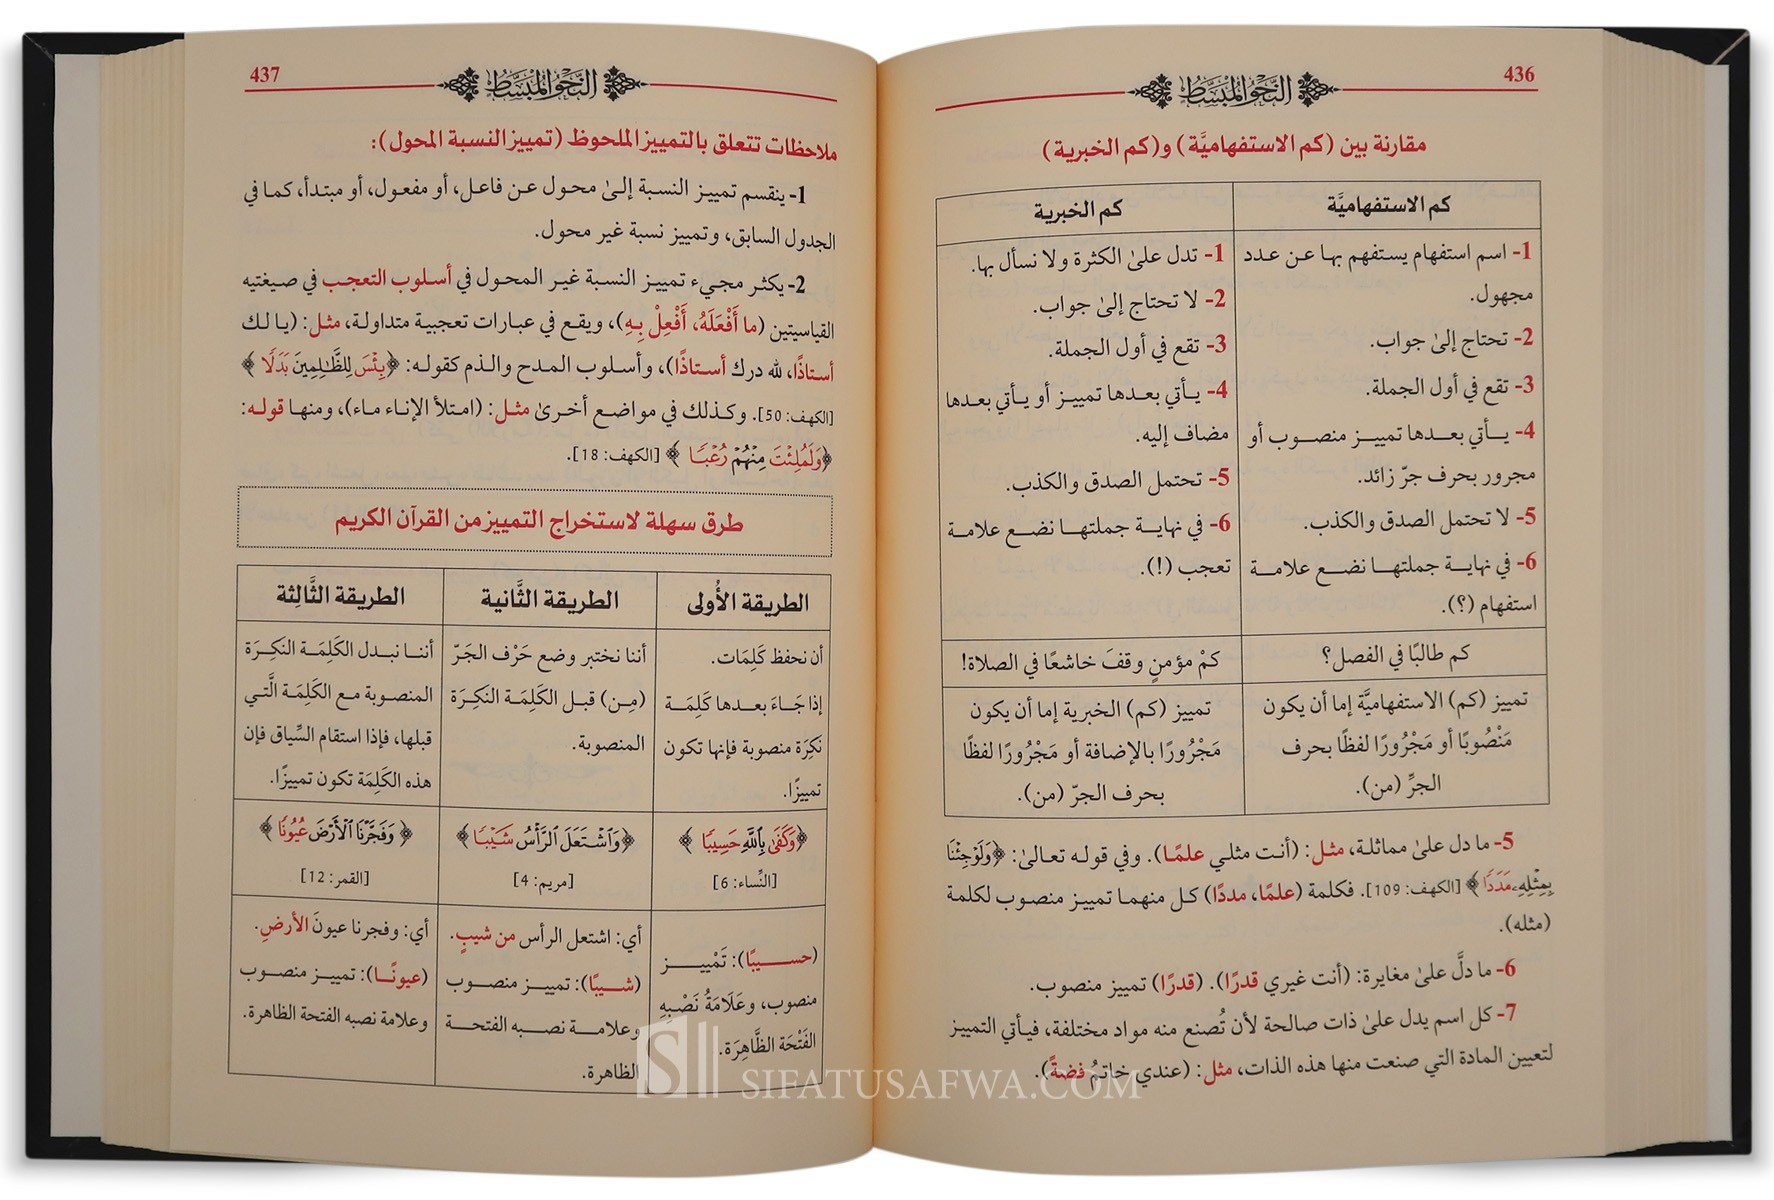 436
النَّحْوُ المُبَسَّطُ
مقارنة بين (كم الاستفهاميَّة) و(كم الخبرية)
كم الاستفهاميَّة
1- اسم استفهام يستفهم بها عن عدد
مجهول.
2- تحتاج إلىٰ جواب.
3- تقع في أول الجملة.
4- يأتي بعدها تمييز منصوب أو
مجرور بحرف جرّ زائد.
5- لا تحتمل الصدق والكذب.
6- في نهاية جملتها نضع علامة
استفهام (؟).
كم الخبرية
1- تدل علىٰ الكثرة ولا نسأل بها.
2- لا تحتاج إلىٰ جواب.
3- تقع في أول الجملة.
4- يأتي بعدها تمييز أو يأتي بعدها
مضاف إليه.
5- تحتمل الصدق والكذب.
6- في نهاية جملتها نضع علامة
تعجب (!).
كم طالبًا في الفصل؟
كمْ مؤمنٍ وقفَ خاشعًا في الصلاة!
تمييز (كم) الاستفهاميَّة إما أن يكون
مَنْصُوبًا أو مَجْرُورًا لفظًا بحرف
الجرِّ (من).
تمييز (كم) الخبرية إما أن يكون
مَجْرُورًا بالإضافة أو مَجْرُورًا لفظًا
بحرف الجرّ (من).
5- ما دل علىٰ مماثلة، مثل: (أنت مثلي علمًا). وفي قوله تعالىٰ: ﴿وَلَوْ جِئْنَا
بِمِثْلِهِۦ مَدَدًا﴾ [الكهف: 109]. فكلمة (علمًا، مددًا) كل منهما تمييز منصوب لكلمة
(مثله).
6- ما دلَّ علىٰ مغايرة: (أنت غيري قدرًا). (قدرًا) تمييز منصوب.
7- كل اسم يدل علىٰ ذات صالحة لأن تُصنع منه مواد مختلفة، فيأتي التمييز
لتعيين المادة التي صنعت منها هذه الذات، مثل: (عندي خاتمُ فضةً).
437
النَّحْوُ المُبَسَّطُ
ملاحظات تتعلق بالتمييز الملحوظ (تمييز النسبة المحول):
1- ينقسم تمييز النسبة إلىٰ محول عن فاعل، أو مفعول، أو مبتدأ، كما في
الجدول السابق، وتمييز نسبة غير محول.
2- يكثر مجيء تمييز النسبة غير المحول في أسلوب التعجب في صيغتيه
القياسيتين (ما أَفْعَلَهُ، أَفْعِلْ بِهِ)، ويقع في عبارات تعجبية متداولة، مثل: (يا لك
أستاذًا، لله درك أستاذًا)، وأسلوب المدح والذم كقوله: ﴿بِئْسَ لِلظَّٰلِمِينَ بَدَلًا﴾
[الكهف: 50]. وكذلك في مواضع أخرىٰ مثل: (امتلأ الإناء ماء)، ومنها قوله:
﴿وَلَمُلِئْتَ مِنْهُمْ رُعْبًا﴾ [الكهف: 18].
طرق سهلة لاستخراج التمييز من القرآن الكريم
الطريقة الأُولى
الطريقة الثَّانية
الطريقة الثَّالِثة
أن نحفظ كَلِمَات.
إذا جَاءَ بعدها كَلِمَة
نَكِرَة منصوبة فإنها تكون
تمييزًا.
أننا نختبر وضع حَرْف الجَرّ
(مِن) قبل الكَلِمَة النَكِرَة
المنصوبة.
أننا نبدل الكَلِمَة النَكِرَة
المنصوبة مع الكَلِمَة الَّتي
قبلها، فإذا استقام السِّياق فإن
هذه الكَلِمَة تكون تمييزًا.
﴿وَكَفَىٰ بِٱللَّهِ حَسِيبًا﴾
[النِّساء: 6]
﴿وَٱشْتَعَلَ ٱلرَّأْسُ شَيْبًا﴾
[مريم: 4]
﴿وَفَجَّرْنَا ٱلْأَرْضَ عُيُونًا﴾
[القمر: 12]
(حسيبًا): تَمْييز
منصوب، وعَلَامَةُ نَصْبِهِ
الفَتْحَة الظَّاهِرَة.
أي: اشتعل الرأس من شيبٍ.
(شيبًا): تمييز منصوب
وعلامة نصبه الفتحة
الظاهرة.
أي: وفجرنا عيونَ الأرضِ.
(عيونًا): تمييز منصوب
وعلامة نصبه الفتحة الظاهرة.
SIFATUSAFWA.COM